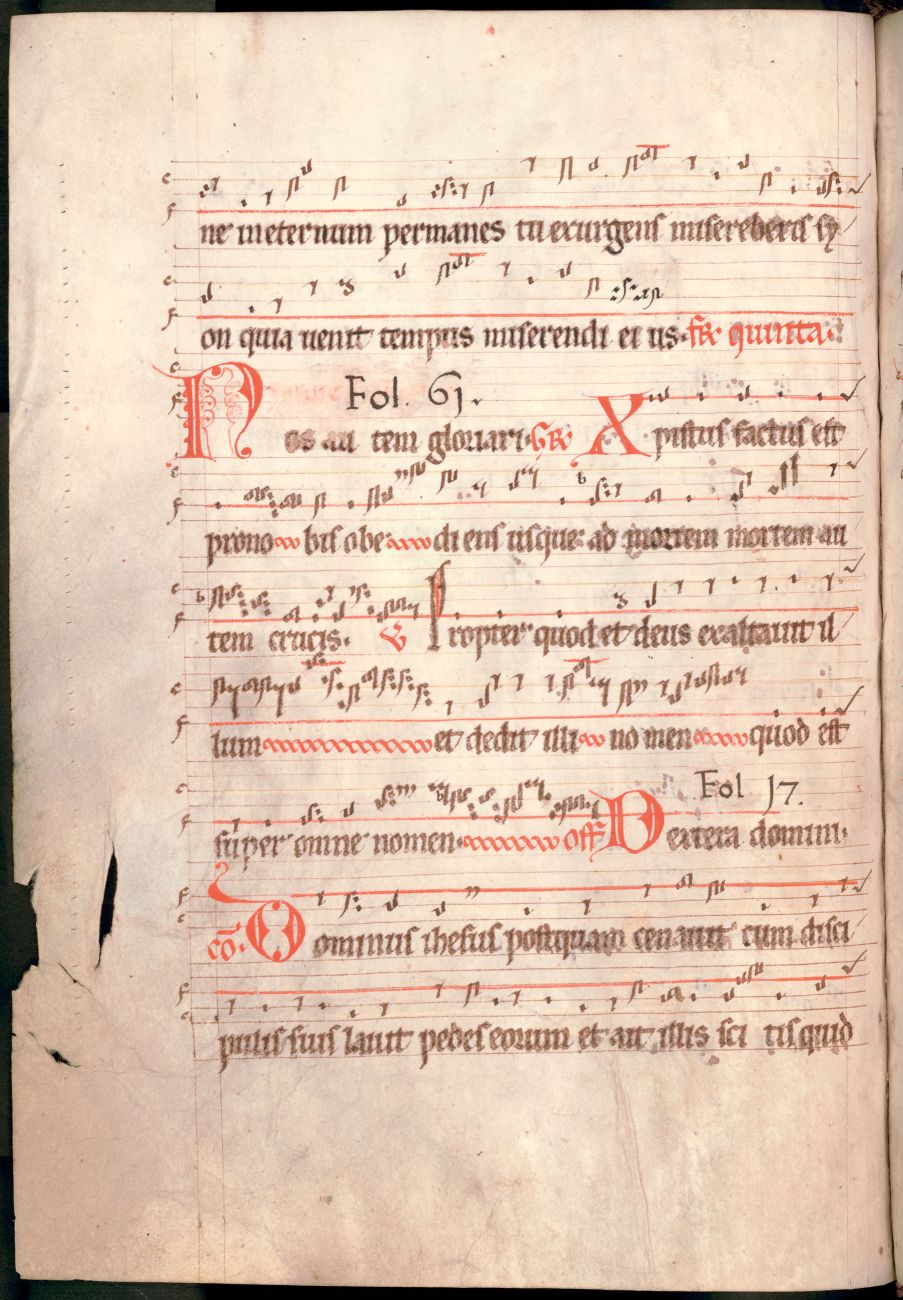 ne in eternum permanes tu exurgens misereberis sy
on quia uenit tempus miserendi ei us. fr quinta.
Fol. 61.
Nos au tem gloriari. Gr Xpistus factus est
pro no bis obe di ens usque ad mortem mortem au
tem crucis. V Propter quod et deus exaltauit il
lum et dedit illi no men quod est
Fol 17.
super omne nomen. off Dextera domini.
co. Dominus ihesus postquam cenauit cum disci
pulis suis lauit pedes eorum et ait illis sci tis quid